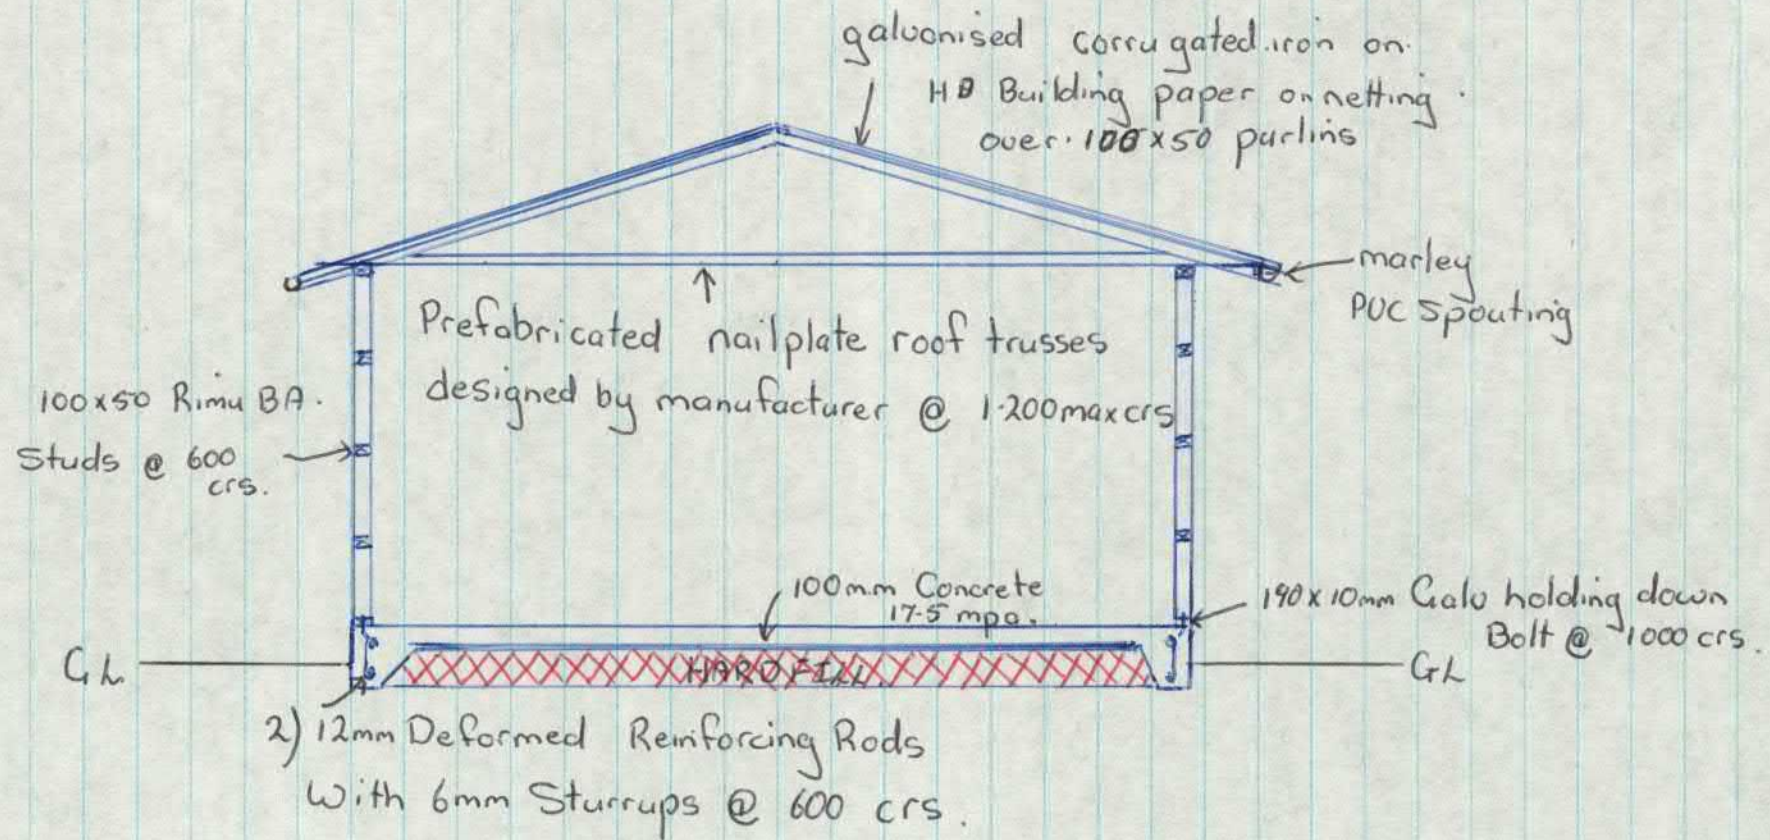 galvonised corrugated iron on
HD Building paper on netting
over 100x50 purlins
marley
PVC Spouting
Prefabricated nailplate roof trusses
designed by manufacturer @ 1.200max crs
100x50 Rimu BA.
Studs @ 600
crs.
100mm Concrete
17.5 mpa.
190x10mm Galv holding down
Bolt @ 1000 crs.
GL
HARDFILL
GL
2) 12mm Deformed Reinforcing Rods
With 6mm Sturrups @ 600 crs.